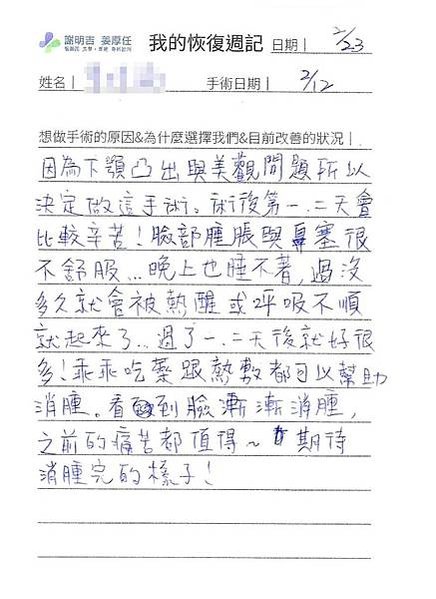 謝明吉 姜厚任 我的恢復週記 日期| 2/23
姓名| 手術日期| 2/12
想做手術的原因&為什麼選擇我們&目前改善的狀況|
因為下顎凸出與美觀問題所以
決定做這手術。術後第一.二天會
比較辛苦!臉部腫脹與鼻塞很
不舒服...晚上也睡不著,過沒
多久就會被熱醒或呼吸不順
就起來了...過了一.二天後就好很
多!乖乖吃藥跟熱敷都可以幫助
消腫。看到臉漸漸消腫,
之前的痛苦都值得~期待
消腫完的樣子!